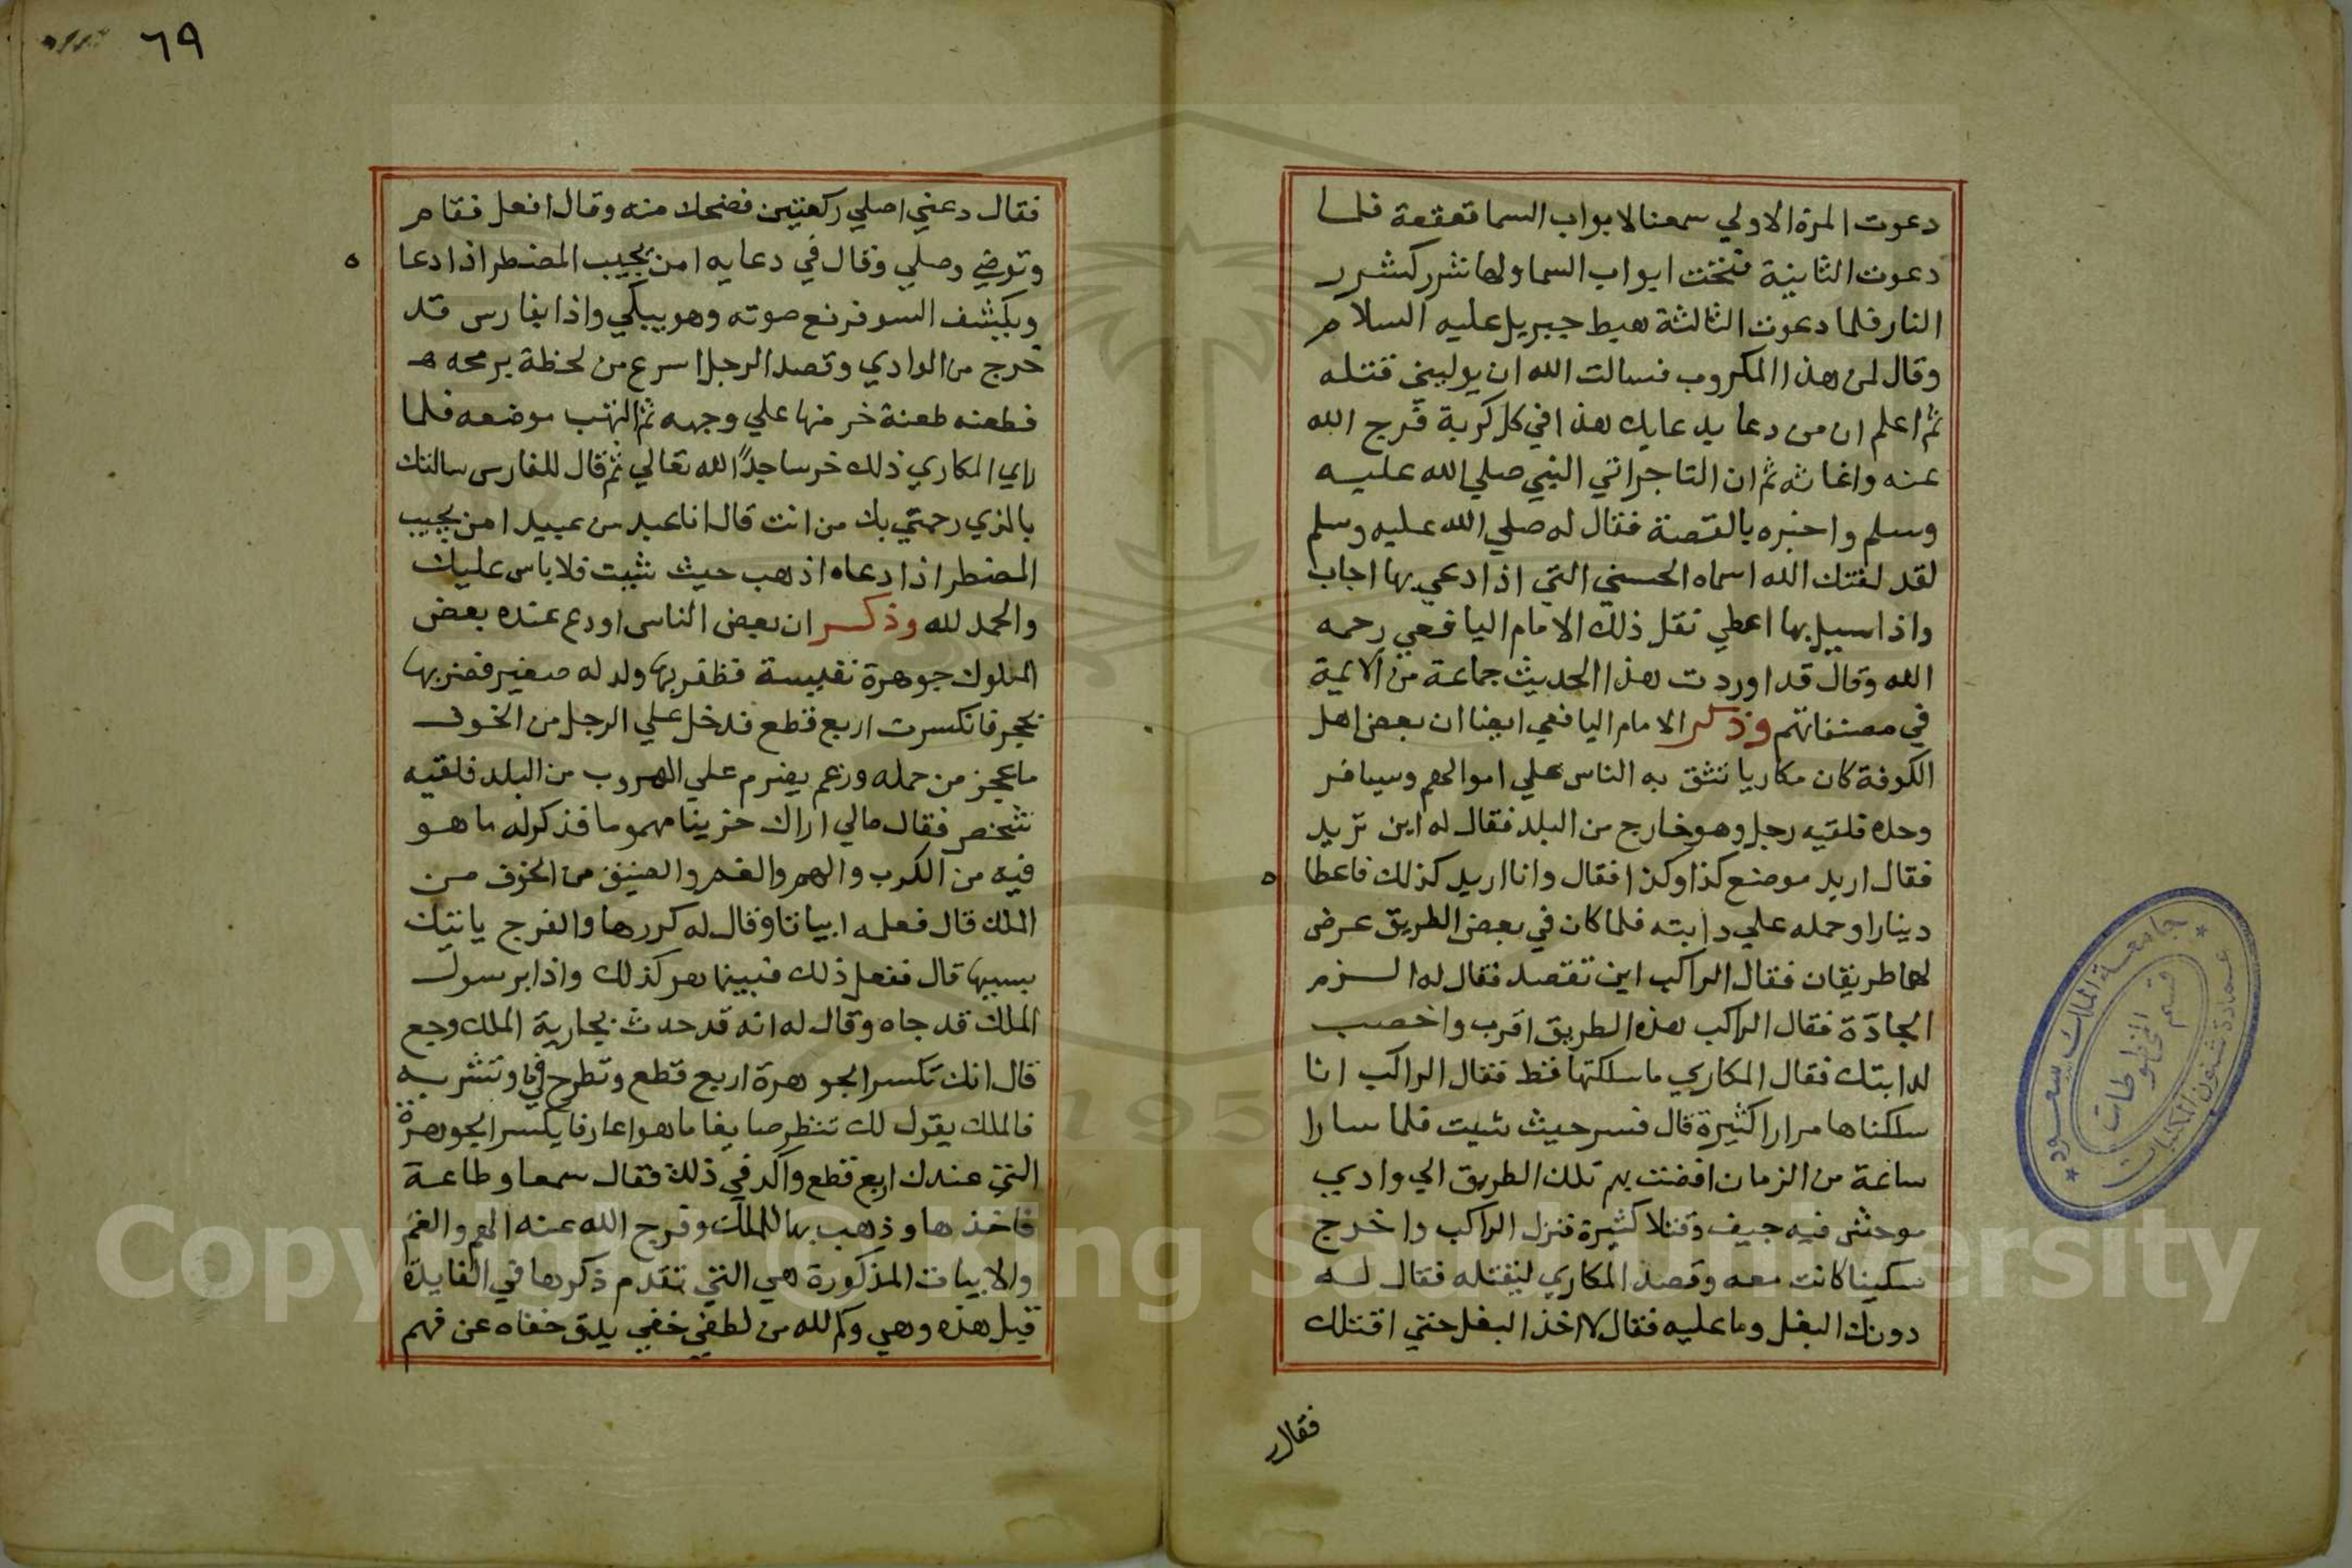 دعوت المرة الاولي سمعنا لابواب السما قعقعة فلما
دعوت الثانية فتحت ابواب السما ولها شرر كشرر
النار فلما دعوت الثالثة هبط جبريل عليه السلام
وقال لمن هذا المكروب فسالت الله ان يوليني قتله
ثم اعلم ان من دعا بدعايك هذا في كل كربة فرج الله
عنه واغاثه ثم ان التاجر اتي النبي صلي الله عليه
وسلم واخبره بالقصة فقال له صلي الله عليه وسلم
لقد لقنك الله اسماه الحسني التي اذا دعي بها اجاب
واذا سيل بها اعطي نقل ذلك الامام اليافعي رحمه
الله وقال قد اوردت هذا الحديث جماعة من الايمة
في مصنفاتهم وذكر الامام اليافعي ايضا ان بعض اهل
الكوفة كان مكاريا تثق به الناس علي اموالهم وسيافر
وحده فلقيه رجل وهو خارج من البلد فقال له اين تريد
فقال اريد موضع كذا وكذا فقال وانا اريد كذلك فاعطا ه
دينارا وحمله علي دابته فلما كان في بعض الطريق عرض
لهما طريقان فقال الراكب اين تقصد فقال له الزم
الجادة فقال الراكب هذه الطريق اقرب واخصب
لدابتك فقال المكاري ما سلكتها قط فقال الراكب انا
سلكناها مرارا كثيرة قال فسر حيث شيت فلما سارا
ساعة من الزمان افضت بهم تلك الطريق الي وادي
موحش فيه جيف وقتلا كثيرة فنزل الراكب واخرج
سكينا كانت معه وقصد المكاري ليقتله فقال له
دونك البغل وما عليه فقال لا اخذ البغل حتي اقتلك
فقال
٦٩
فقال دعني اصلي ركعتين فضحك منه وقال افعل فقام
وتوضي وصلي وقال في دعايه امن يجيب المضطر اذا دعا ه
ويكشف السو فرفع صوته وهو يبكي واذا بفارس قد
خرج من الوادي وقصد الرجل اسرع من لحظة برمحه
فطعنه طعنة خر منها علي وجهه ثم التهب موضعه فلما
راي المكاري ذلك خر ساجدا لله تعالي ثم قال للفارس سالتك
بالذي رحمني بك من انت قال انا عبد من عبيد امن يجيب
المضطر اذا دعاه اذهب حيث شيت فلا باس عليك
والحمد لله وذكر ان بعض الناس اودع عنده بعض
الملوك جوهرة نفيسة فظفر بها ولد له صغير فضربها
بحجر فانكسرت اربع قطع فدخل علي الرجل من الخوف
ما عجز من حمله وزعم يضرم علي الهروب من البلد فلقيه
شخص فقال مالي اراك حزينا مهموما فذكر له ما هو
فيه من الكرب والهم والغم والضيق من الخوف من
الملك قال فعلمه ابياتا وقال له كررها والفرج ياتيك
بسببها قال ففعل ذلك فبينما هو كذلك واذا برسول
الملك قد جاه وقال له انه قد حدث بجارية الملك وجع
قال انك تكسر الجوهرة اربع قطع وتطرح في ما وتشربه
فالملك يقول لك تنظر صايغا ماهرا عارفا يكسر الجوهرة
التي عندك اربع قطع واكد في ذلك فقال سمعا وطاعة
فاخذها وذهب بها للملك وفرج الله عنه الهم والغم
والابيات المذكورة هي التي تقدم ذكرها في الفايدة
قبل هذه وهي وكم لله من لطف خفي يدق خفاه عن فهم
جامعة الملك سعود
عمادة شئون المكتبات
قسم المخطوطات
1957
Copyright © King Saud University